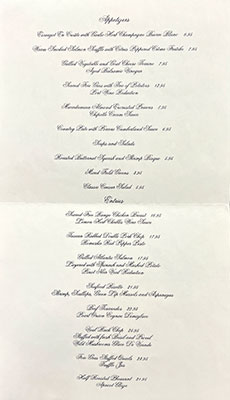 Appetizers
Escargot En Croûte with Garlic Herb Champagne Beurre Blanc 8.95
House Smoked Salmon Truffle with Citrus Peppered Crème Fraîche 7.95
Grilled Vegetable and Goat Cheese Terrine 7.95
Aged Balsamic Vinegar
Seared Foie Gras with Duo of Potatoes 12.95
Port Wine Reduction
Almond Encrusted 8.95
Chipotle Cream Sauce
Country Pate with Cumberland Sauce 6.95
Soups and Salads
Roasted Butternut Squash and Shrimp Bisque 5.95
Field Greens 5.95
Classic Caesar Salad 5.95
Entrees
Seared Free Range Chicken Breast 16.95
Lemon Chablis Wine Sauce
Tuscan Grilled Double Pork Chop 17.95
Red Pepper Pesto
Grilled Atlantic Salmon 17.95
with Spinach and Potato
Pinot Noir Reduction
Seafood Risotto 21.95
Shrimp, Scallops, Green Lip Mussels and Asparagus
Beef Tournedos 22.95
Pearl Onion Cognac Demiglace
Veal Rack Chop 24.95
Stuffed with fresh Basil and
Wild Mushrooms Glace De Viande
Foie Gras Stuffed Quails 23.95
Truffle Jus
Half Roasted Pheasant 24.95
Apricot Glaze